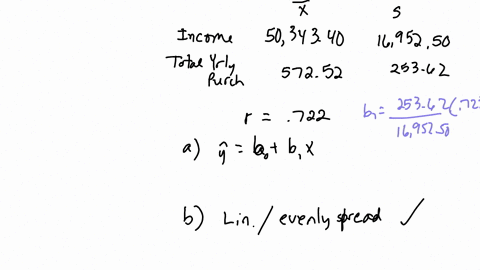 x̄ s
Income 50,343.40 16,952.50
Total Yrly Purch 572.52 253.62
r = .722
b₁ = 253.62(.72
16,952.50
a) ŷ = b₀ + b₁x
b) Lin. / evenly spread ✓